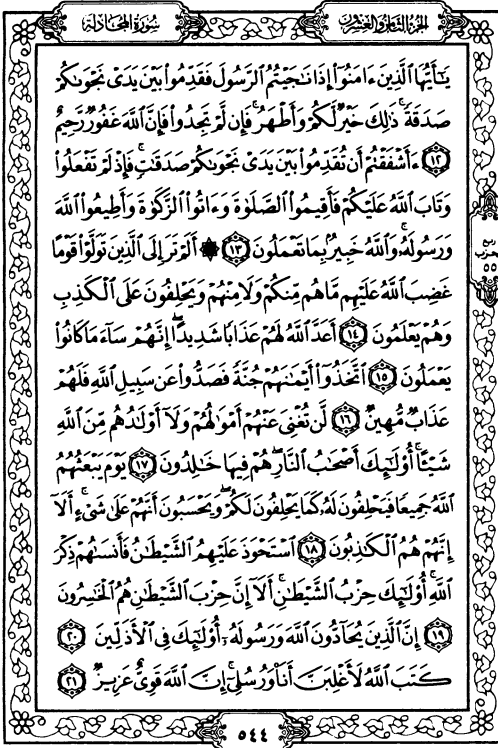 الجزء الثامن والعشرون
سورة المجادلة
يَٰٓأَيُّهَا ٱلَّذِينَ ءَامَنُوٓا۟ إِذَا نَٰجَيْتُمُ ٱلرَّسُولَ فَقَدِّمُوا۟ بَيْنَ يَدَىْ نَجْوَىٰكُمْ
صَدَقَةً ۚ ذَٰلِكَ خَيْرٌ لَّكُمْ وَأَطْهَرُ ۚ فَإِن لَّمْ تَجِدُوا۟ فَإِنَّ ٱللَّهَ غَفُورٌ رَّحِيمٌ
١٢ ءَأَشْفَقْتُمْ أَن تُقَدِّمُوا۟ بَيْنَ يَدَىْ نَجْوَىٰكُمْ صَدَقَٰتٍ ۚ فَإِذْ لَمْ تَفْعَلُوا۟
وَتَابَ ٱللَّهُ عَلَيْكُمْ فَأَقِيمُوا۟ ٱلصَّلَوٰةَ وَءَاتُوا۟ ٱلزَّكَوٰةَ وَأَطِيعُوا۟ ٱللَّهَ
وَرَسُولَهُۥ ۚ وَٱللَّهُ خَبِيرٌۢ بِمَا تَعْمَلُونَ ١٣ ۞ أَلَمْ تَرَ إِلَى ٱلَّذِينَ تَوَلَّوْا۟ قَوْمًا
غَضِبَ ٱللَّهُ عَلَيْهِم مَّا هُم مِّنكُمْ وَلَا مِنْهُمْ وَيَحْلِفُونَ عَلَى ٱلْكَذِبِ
وَهُمْ يَعْلَمُونَ ١٤ أَعَدَّ ٱللَّهُ لَهُمْ عَذَابًا شَدِيدًا ۖ إِنَّهُمْ سَآءَ مَا كَانُوا۟
يَعْمَلُونَ ١٥ ٱتَّخَذُوٓا۟ أَيْمَٰنَهُمْ جُنَّةً فَصَدُّوا۟ عَن سَبِيلِ ٱللَّهِ فَلَهُمْ
عَذَابٌ مُّهِينٌ ١٦ لَّن تُغْنِىَ عَنْهُمْ أَمْوَٰلُهُمْ وَلَآ أَوْلَٰدُهُم مِّنَ ٱللَّهِ
شَيْـًٔا ۚ أُو۟لَٰٓئِكَ أَصْحَٰبُ ٱلنَّارِ ۖ هُمْ فِيهَا خَٰلِدُونَ ١٧ يَوْمَ يَبْعَثُهُمُ
ٱللَّهُ جَمِيعًا فَيَحْلِفُونَ لَهُۥ كَمَا يَحْلِفُونَ لَكُمْ ۖ وَيَحْسَبُونَ أَنَّهُمْ عَلَىٰ شَىْءٍ ۚ أَلَآ
إِنَّهُمْ هُمُ ٱلْكَٰذِبُونَ ١٨ ٱسْتَحْوَذَ عَلَيْهِمُ ٱلشَّيْطَٰنُ فَأَنسَىٰهُمْ ذِكْرَ
ٱللَّهِ ۚ أُو۟لَٰٓئِكَ حِزْبُ ٱلشَّيْطَٰنِ ۚ أَلَآ إِنَّ حِزْبَ ٱلشَّيْطَٰنِ هُمُ ٱلْخَٰسِرُونَ
١٩ إِنَّ ٱلَّذِينَ يُحَآدُّونَ ٱللَّهَ وَرَسُولَهُۥٓ أُو۟لَٰٓئِكَ فِى ٱلْأَذَلِّينَ ٢٠
كَتَبَ ٱللَّهُ لَأَغْلِبَنَّ أَنَا۠ وَرُسُلِىٓ ۚ إِنَّ ٱللَّهَ قَوِىٌّ عَزِيزٌ ٢١
٥٤٤
ربع
الحزب
٥٥